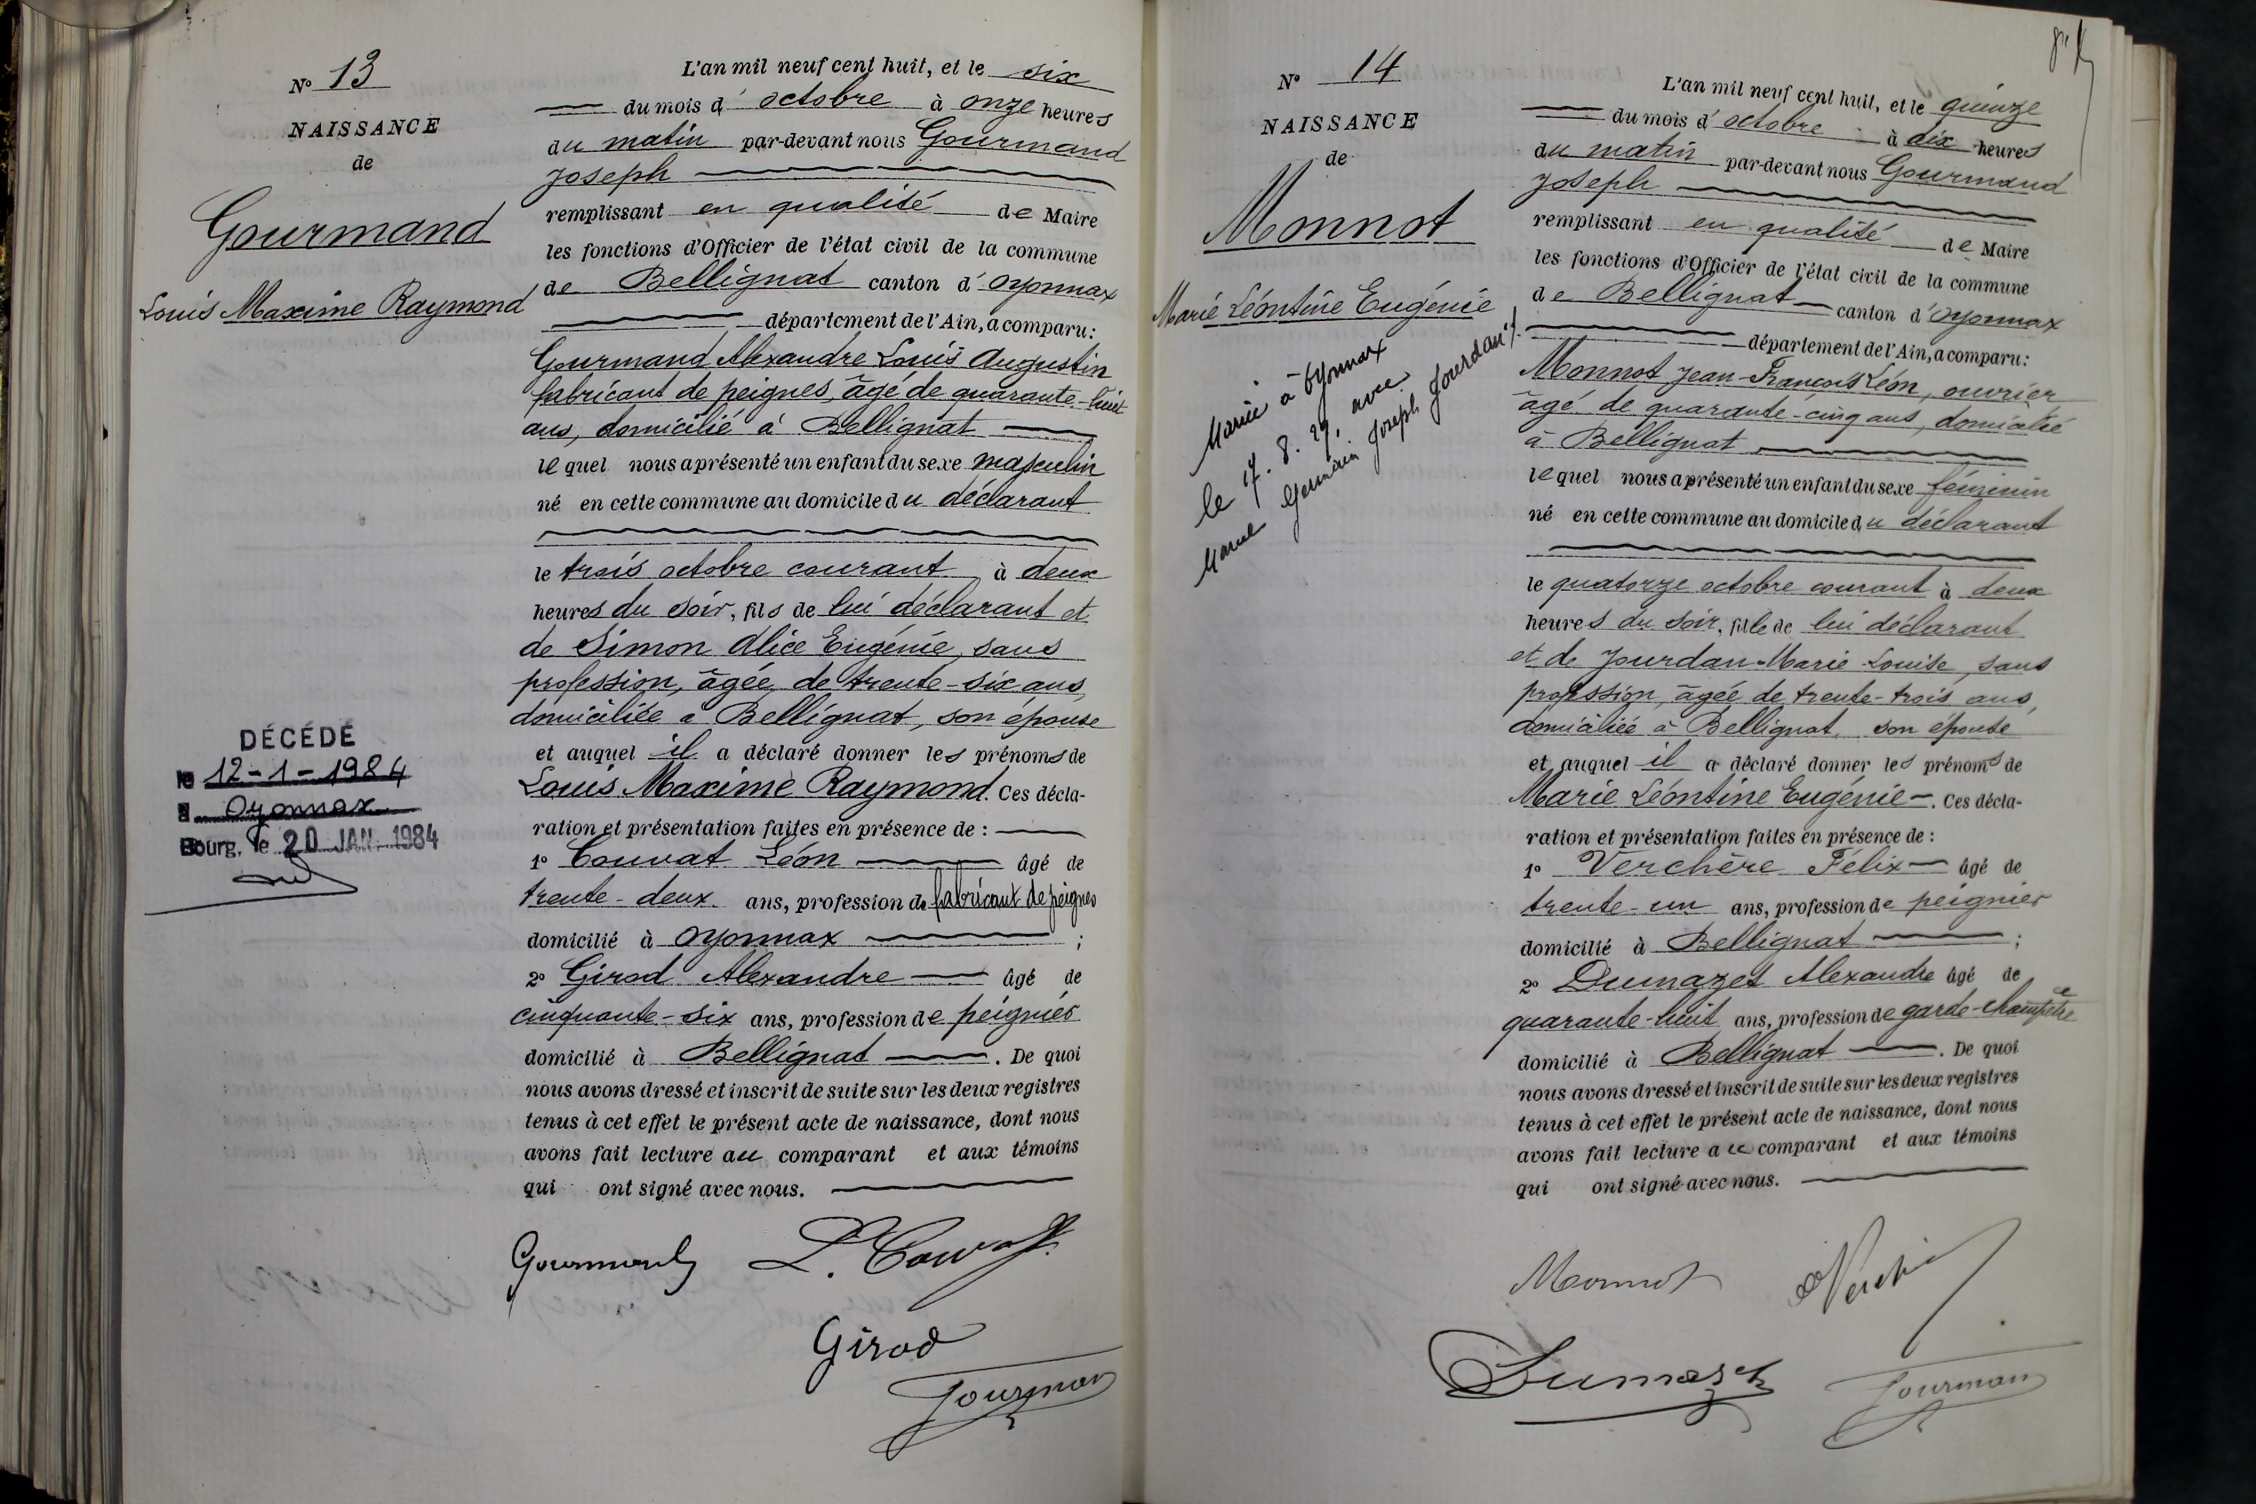 N° 13
NAISSANCE
de
Gourmand
Louis Maxime Raymond
DÉCÉDÉ
le 12-1-1984
à Oyonnax
Bourg, le 20 JAN. 1984
L'an mil neuf cent huit, et le six
du mois d'octobre à onze heures
du matin par-devant nous Gourmand
Joseph
remplissant en qualité de Maire
les fonctions d'Officier de l'état civil de la commune
de Bellignat canton d'Oyonnax
département de l'Ain, a comparu:
Gourmand Alexandre Louis Augustin
fabricant de peignes, âgé de quarante-huit
ans, domicilié à Bellignat
lequel nous a présenté un enfant du sexe masculin
né en cette commune au domicile du déclarant
le trois octobre courant à deux
heures du soir, fils de lui déclarant et
de Simon Alice Eugénie, sans
profession, âgée de trente-six ans,
domiciliée à Bellignat, son épouse
et auquel il a déclaré donner les prénoms de
Louis Maxime Raymond. Ces décla-
ration et présentation faites en présence de :
1° Couvat Léon âgé de
trente-deux ans, profession de fabricant de peignes
domicilié à Oyonnax ;
2° Girod Alexandre âgé de
cinquante-six ans, profession de peignier
domicilié à Bellignat . De quoi
nous avons dressé et inscrit de suite sur les deux registres
tenus à cet effet le présent acte de naissance, dont nous
avons fait lecture au comparant et aux témoins
qui ont signé avec nous.
Gourmand L. Couvat
Girod
Gourmand
N° 14
NAISSANCE
de
Monnot
Marie Léontine Eugénie
Mariée à Oyonnax
le 17.8.29. avec
Marcel Germain Joseph Jourdan
L'an mil neuf cent huit, et le quinze
du mois d'octobre à dix heures
du matin par-devant nous Gourmand
Joseph
remplissant en qualité de Maire
les fonctions d'Officier de l'état civil de la commune
de Bellignat canton d'Oyonnax
département de l'Ain, a comparu:
Monnot Jean-François Léon, ouvrier
âgé de quarante-cinq ans, domicilié
à Bellignat
lequel nous a présenté un enfant du sexe féminin
né en cette commune au domicile du déclarant
le quatorze octobre courant à deux
heures du soir, fille de lui déclarant
et de Jourdan Marie Louise, sans
profession, âgée de trente-trois ans,
domiciliée à Bellignat, son épouse
et auquel il a déclaré donner les prénoms de
Marie Léontine Eugénie -. Ces décla-
ration et présentation faites en présence de :
1° Verchère Félix âgé de
trente-un ans, profession de peignier
domicilié à Bellignat ;
2° Dumazet Alexandre âgé de
quarante-huit ans, profession de garde-champêtre
domicilié à Bellignat . De quoi
nous avons dressé et inscrit de suite sur les deux registres
tenus à cet effet le présent acte de naissance, dont nous
avons fait lecture au comparant et aux témoins
qui ont signé avec nous.
Monnot
Dumazet Gourmand